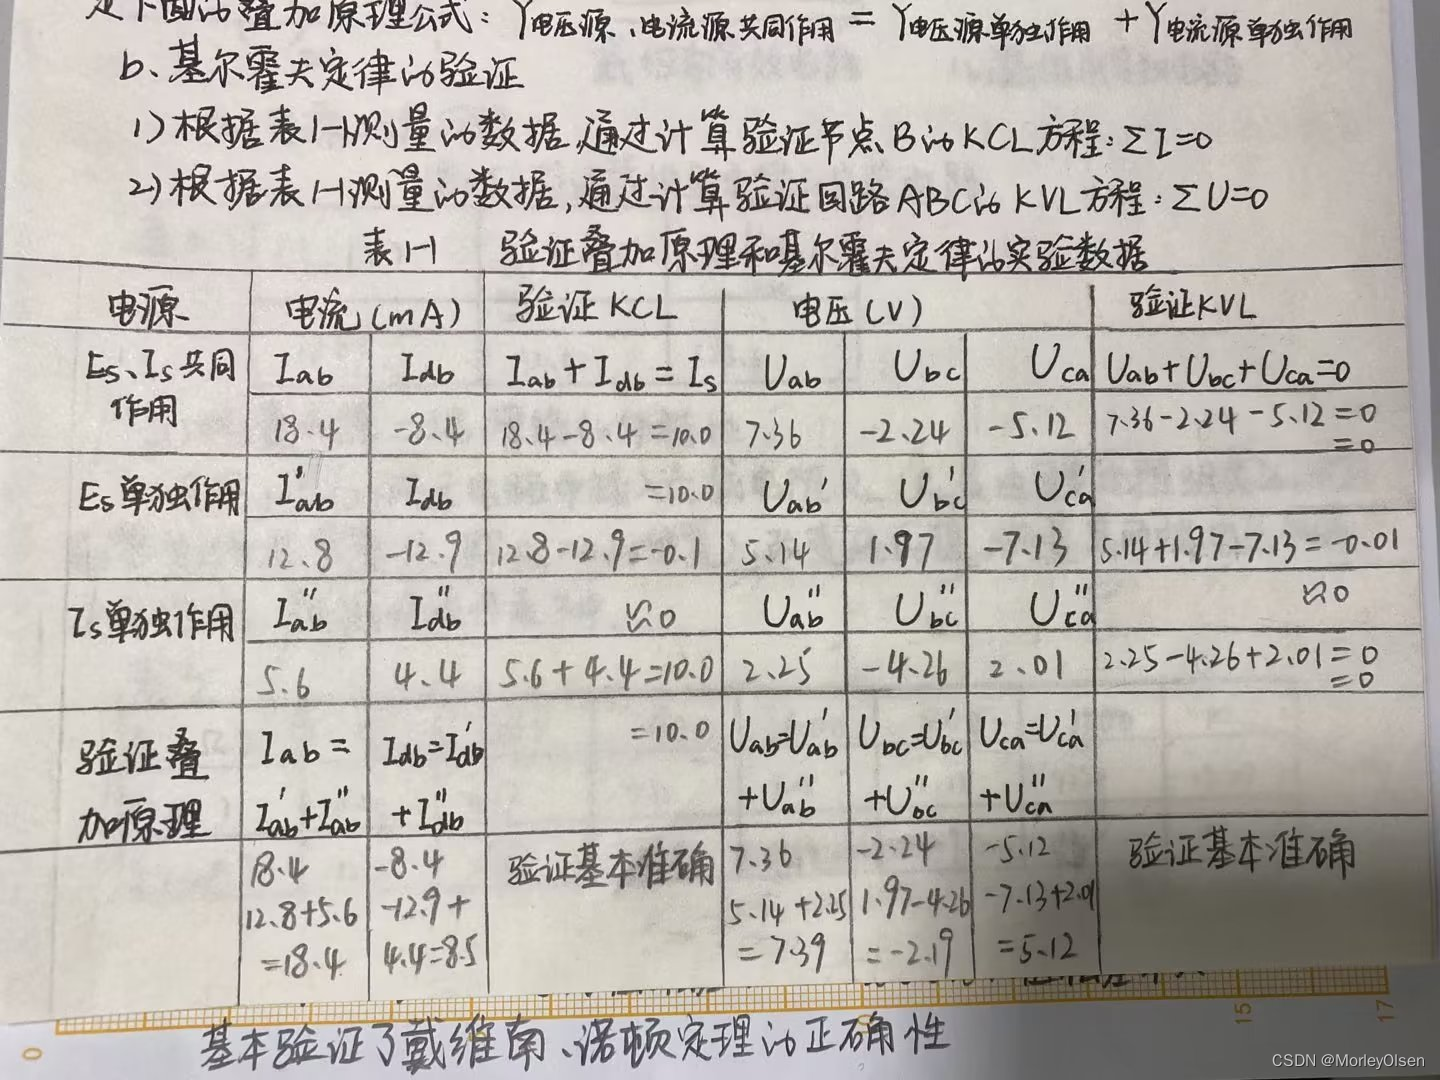 是下面的叠加原理公式: Y电压源、电流源共同作用 = Y电压源单独作用 + Y电流源单独作用
b、基尔霍夫定律的验证
1)根据表1-1测量的数据,通过计算验证节点B的KCL方程:ΣI=0
2)根据表1-1测量的数据,通过计算验证回路ABC的KVL方程:ΣU=0
表1-1 验证叠加原理和基尔霍夫定律的实验数据
电源 电流(mA) 验证KCL 电压(V) 验证KVL
Es、Is共同 Iab Idb Iab+Idb=Is Uab Ubc Uca Uab+Ubc+Uca=0
作用 18.4 -8.4 18.4-8.4=10.0 7.36 -2.24 -5.12 7.36-2.24-5.12=0
=0
Es单独作用 I'ab Idb =10.0 Uab' Ubc' Uca'
12.8 -12.9 12.8-12.9=-0.1 5.14 1.97 -7.13 5.14+1.97-7.13=-0.01
Is单独作用 Iab'' Idb'' ≈0 Uab'' Ubc'' Uca'' ≈0
5.6 4.4 5.6+4.4=10.0 2.25 -4.26 2.01 2.25-4.26+2.01=0
=0
验证叠 Iab= Idb=I'db =10.0 Uab=U'ab Ubc=U'bc Uca=U'ca
加原理 I'ab+I''ab +I''db +U''ab +U''bc +U''ca
18.4 -8.4 验证基本准确 7.36 -2.24 -5.12 验证基本准确
12.8+5.6 -12.9+ 5.14+2.25 1.97-4.26 -7.13+2.01
=18.4 4.4=8.5 =7.39 =-2.19 =5.12
0 15 17
基本验证了戴维南、诺顿定理的正确性
CSDN @MorleyOlsen